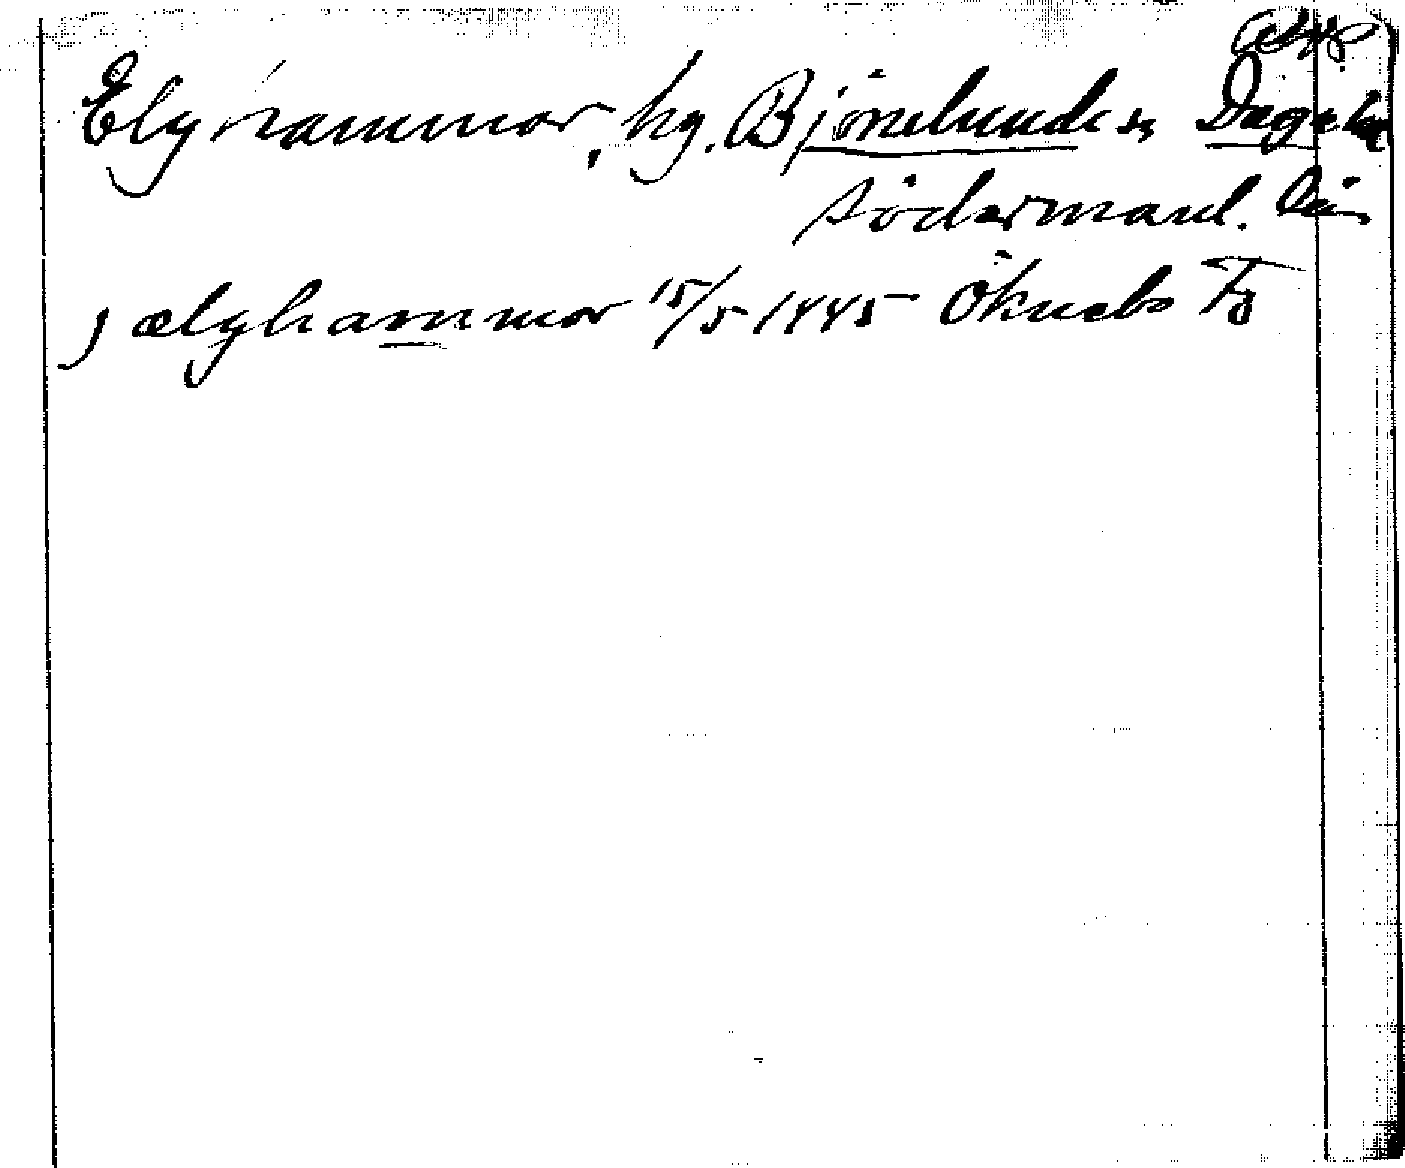 Elghammar, hg. Björnlunda sn Daga hd
Södermanl. län
j ælghammar 15/5 1445 Öknebo Fỏ